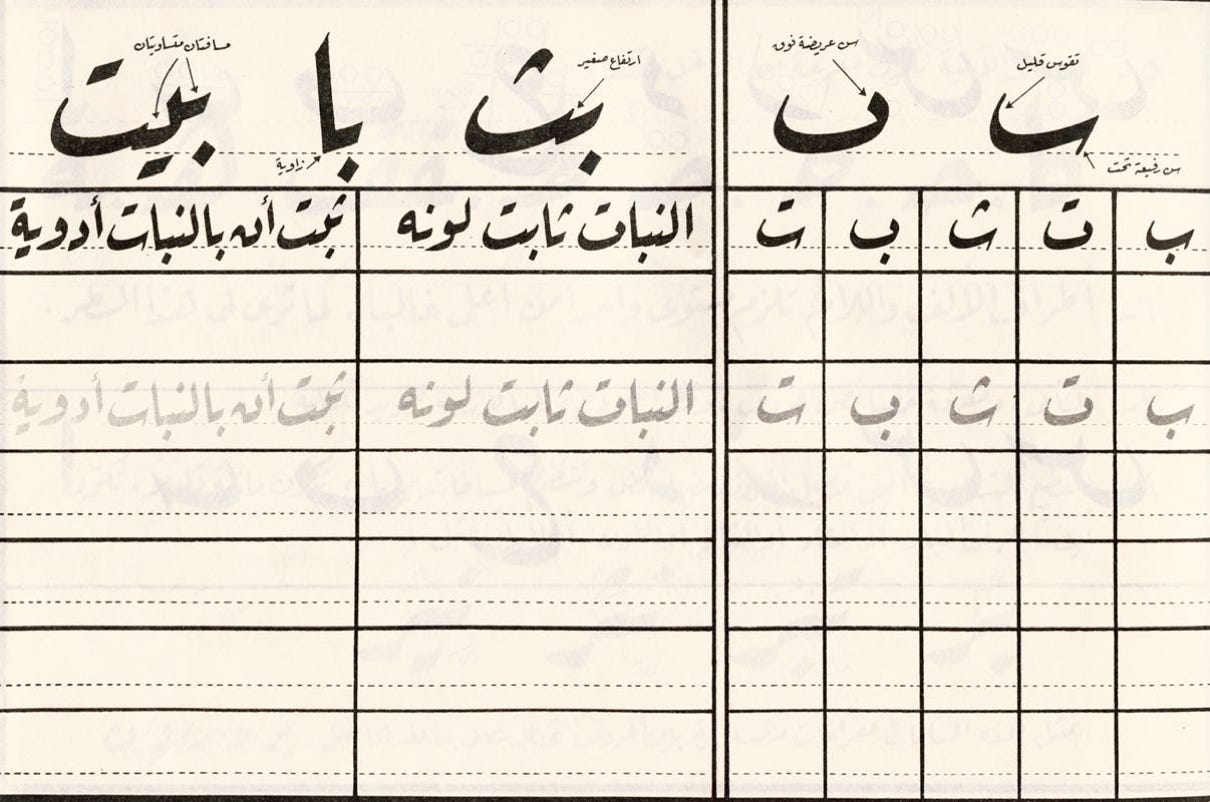 تقوس قليل
سن عريضة فوق
سن رفيعة تحت
ارتفاع صغير
مسافتان متساويتان
زاوية
با بيت
ب ت ث ب ت النبات ثابت لونه ثبت أن بالنبات أدوية
ب ت ث ب ت النبات ثابت لونه ثبت أن بالنبات أدوية